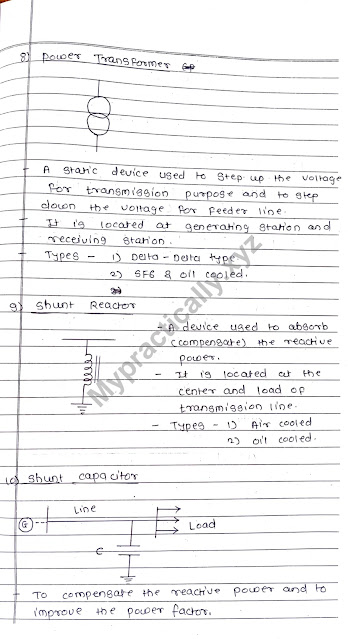 8) Power Transformer
- A static device used to step up the voltage
for transmission purpose and to step
down the voltage for feeder line.
- It is located at generating station and
receiving station.
- Types - 1) Delta - Delta type
2) SF6 & oil cooled.
9) Shunt Reactor
- A device used to absorb
(compensate) the reactive
power.
- It is located at the
center and load of
transmission line.
- Types - 1) Air cooled
2) oil cooled.
10) Shunt capacitor
Line
G
Load
C
- To compensate the reactive power and to
improve the power factor.
Mypractically.xyz